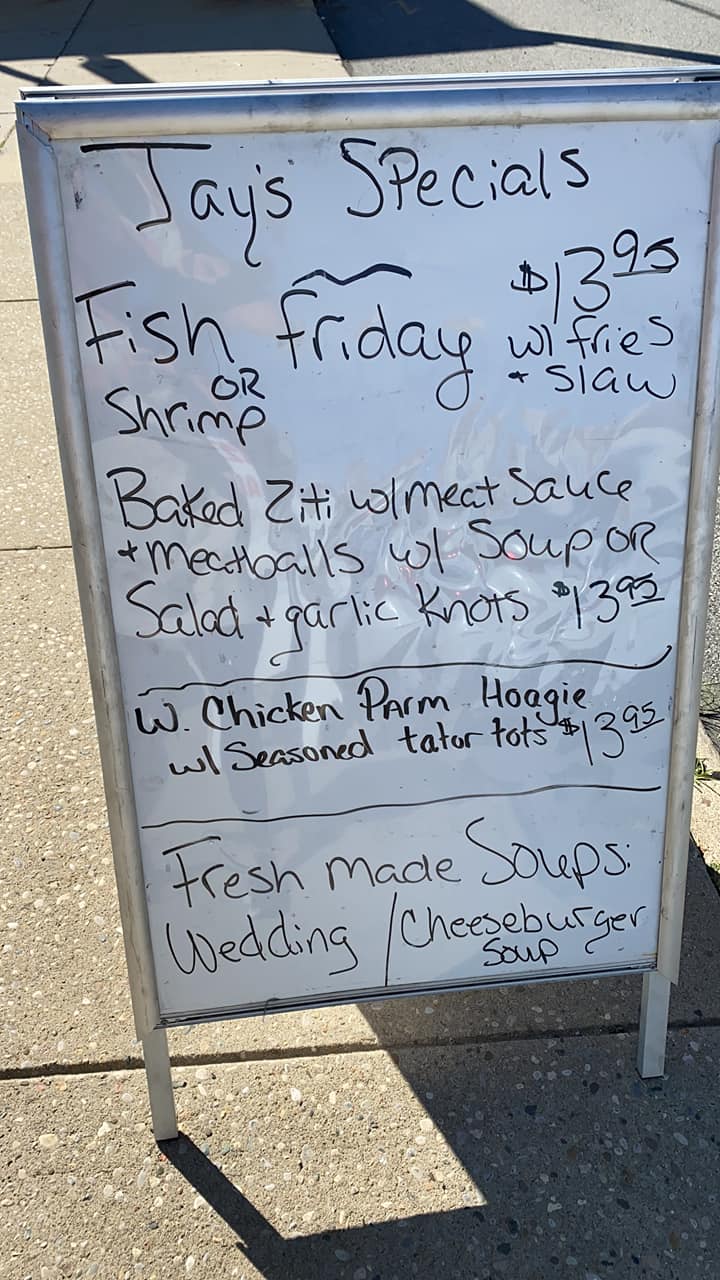 Jay's Specials
Fish Friday $13.95
OR w/ fries
Shrimp + Slaw
Baked Ziti w/meat Sauce
+meatballs w/ Soup OR
Salad + garlic Knots $13.95
W. Chicken Parm Hoagie
w/ Seasoned tator tots $13.95
Fresh made Soups:
Wedding / Cheeseburger
Soup